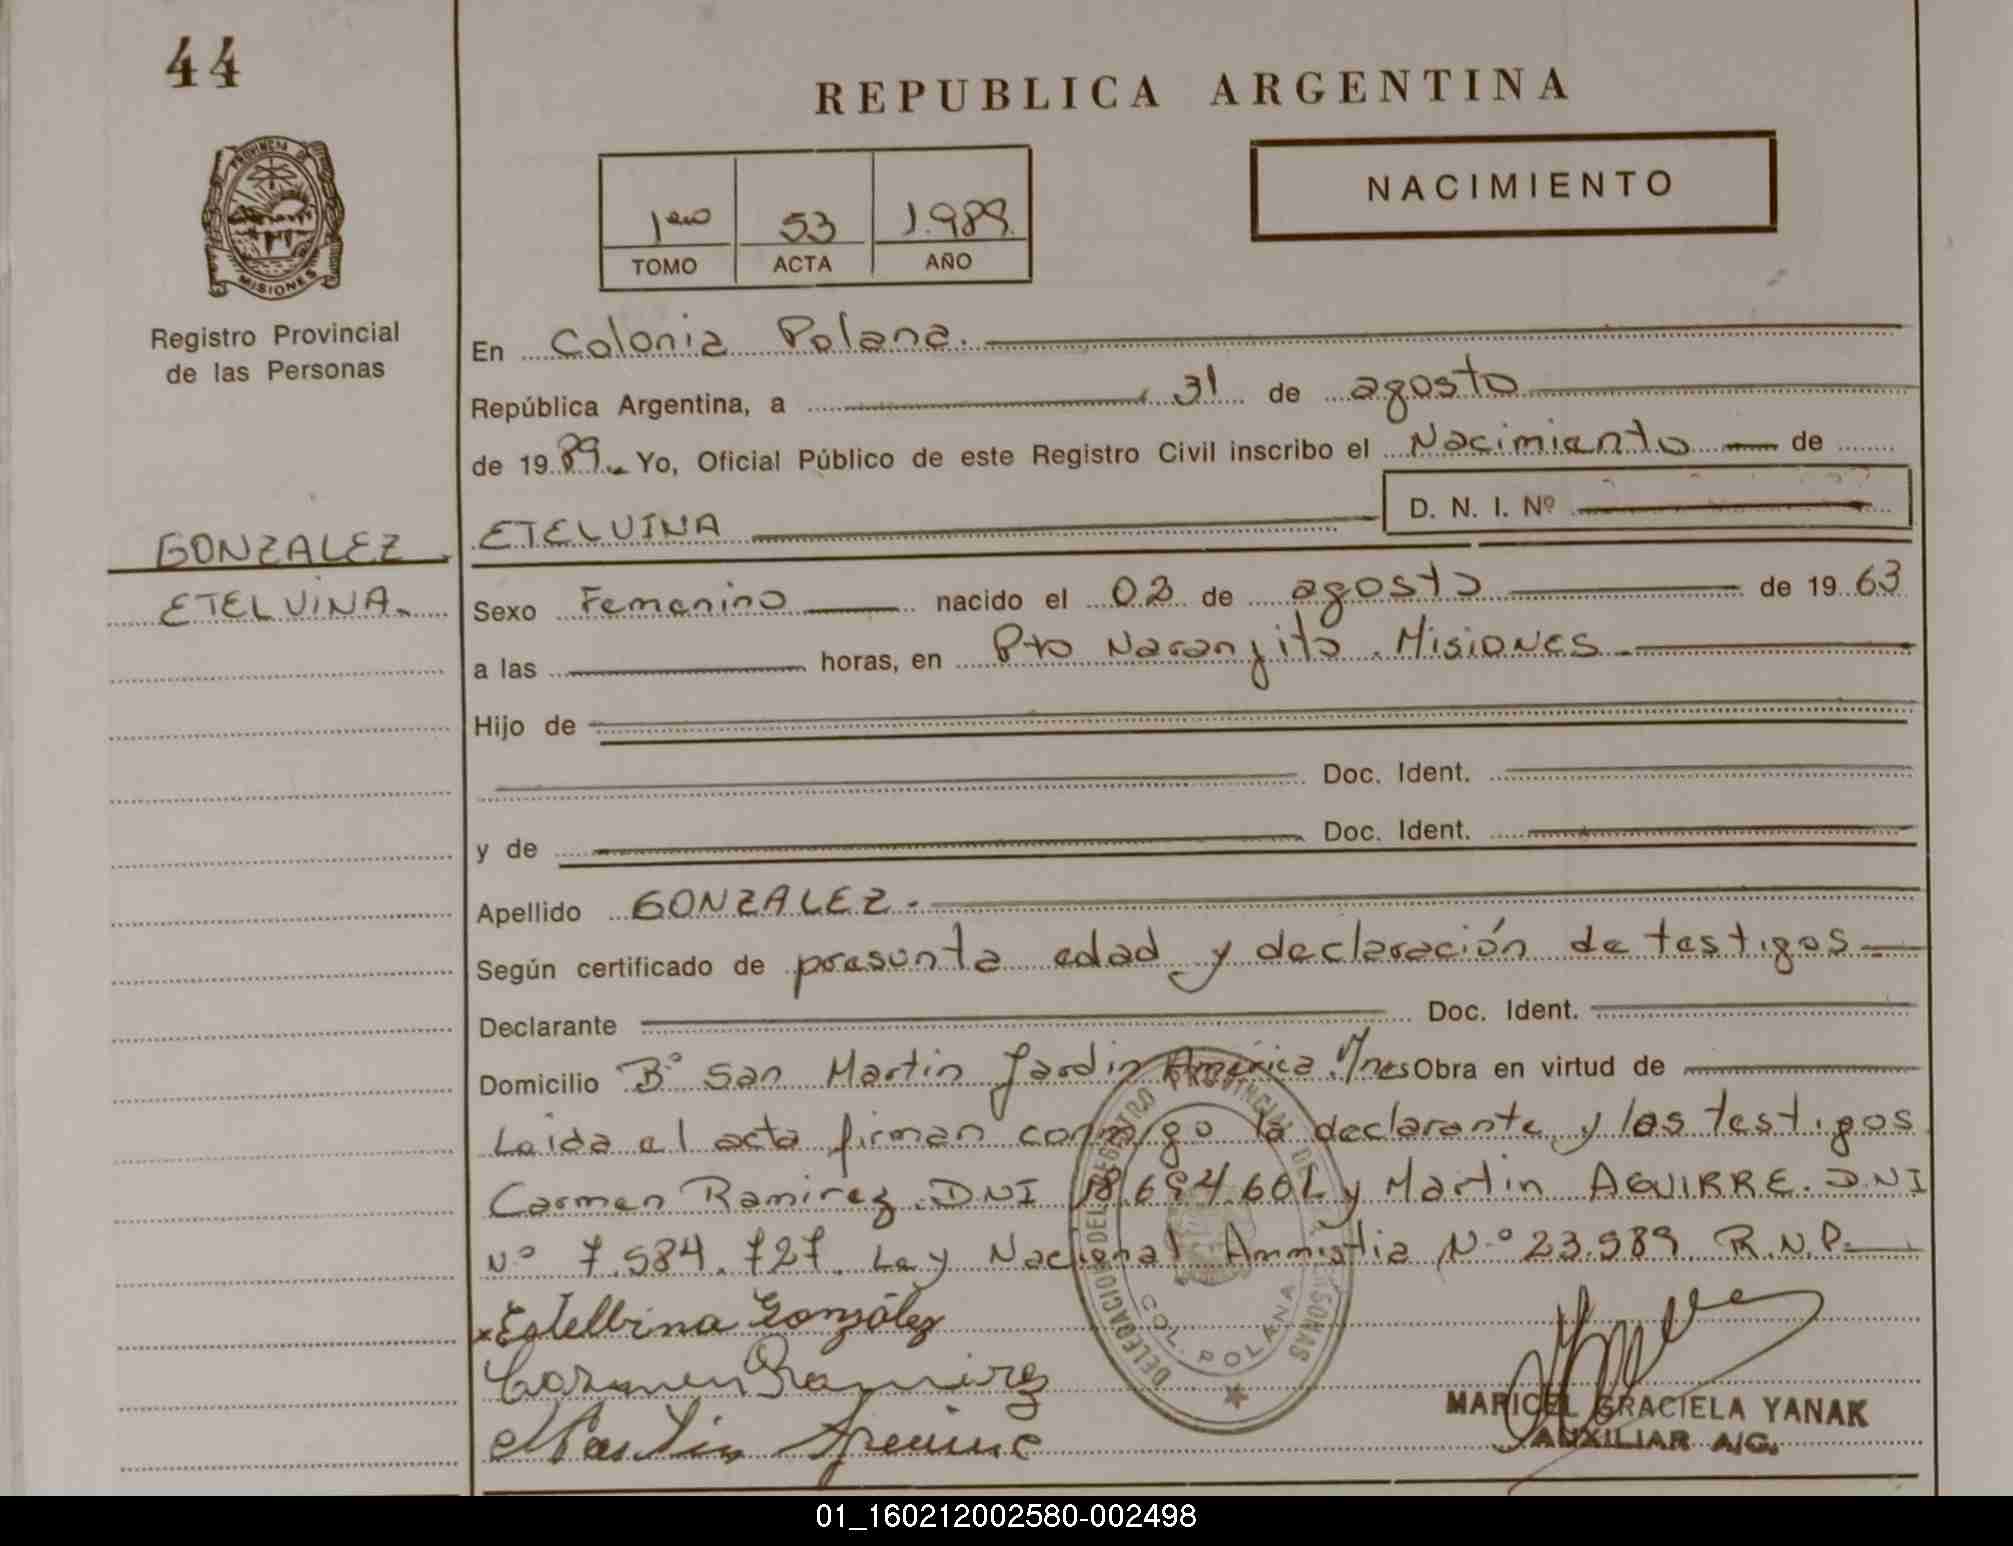 44
REPUBLICA ARGENTINA
NACIMIENTO
1ero 53 1.989.
TOMO ACTA AÑO
PROVINCIA DE
MISIONES
Registro Provincial
de las Personas
En Colonia Polana.
República Argentina, a 31 de agosto
de 1989. Yo, Oficial Público de este Registro Civil inscribo el Nacimiento de
D. N. I. Nº
GONZALEZ
ETELVINA.
ETELVINA
Sexo Femenino nacido el 02 de agosto de 1963
a las horas, en Pto Naranjito. Misiones.
Hijo de
Doc. Ident.
y de Doc. Ident.
Apellido GONZALEZ.
Según certificado de presunta edad y declaración de testigos
Declarante Doc. Ident.
Domicilio Bº San Martin Jardin América. Mnes Obra en virtud de
Leida el acta firman conmigo la declarante y los testigos
Carmen Ramirez. DNI 18.694.601 y Martin AGUIRRE. DNI
Nº 7.584.727. Ley Nacional Amnistia N.º 23.989 R.N.P.
x Estelbina González
Carmen Ramirez
Martin Aguirre
DELEGACION DEL REGISTRO PROVINCIAL DE LAS PERSONAS
COL. POLANA
MARICEL GRACIELA YANAK
AUXILIAR A/G.
01_160212002580-002498